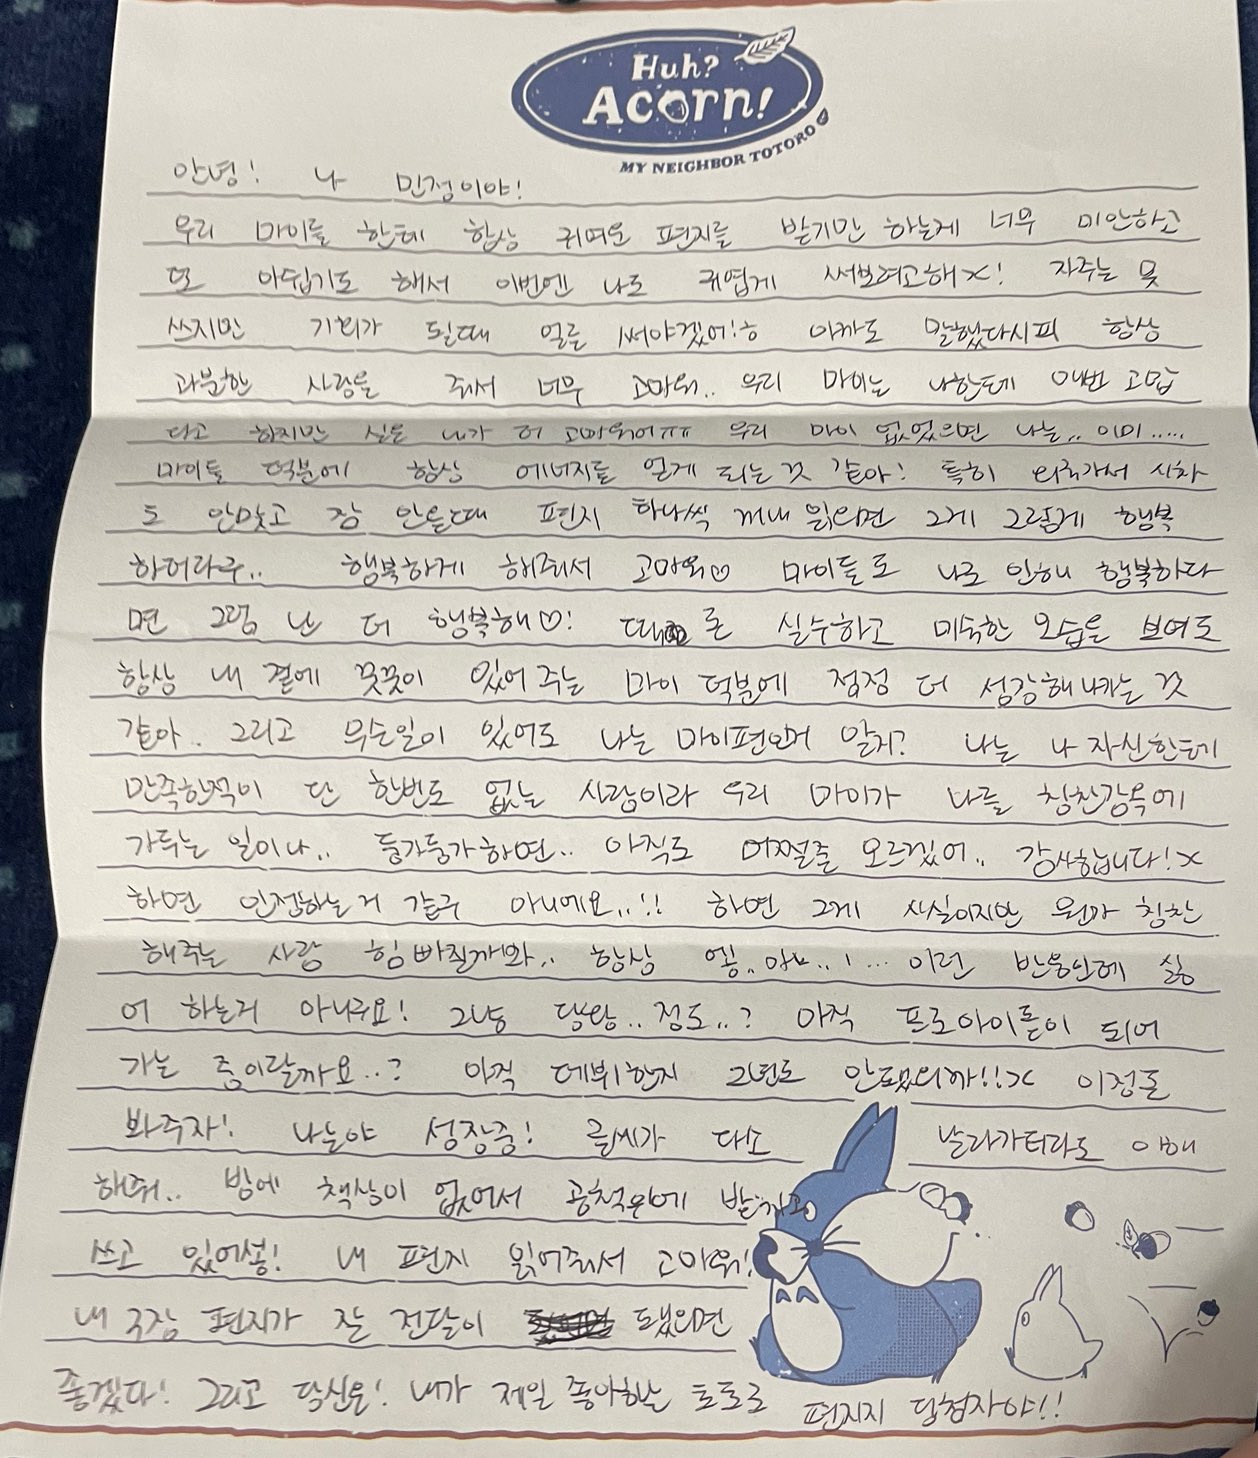 Huh?
Acorn!
MY NEIGHBOR TOTORO
안녕! 나 민정이야!
우리 마이들 한테 항상 귀여운 편지를 받기만 하는게 너무 미안하고
또 아쉽기도 해서 이번엔 나도 귀엽게 써보려고해ㅊ! 자주는 못
쓰지만 기회가 될때 얼른 써야겠어!ㅎ 아까도 말했다시피 항상
과분한 사랑을 줘서 너무 고마워.. 우리 마이는 나한테 매번 고맙
다고 하지만 실은 내가 더 고마워어ㅠㅠ 우리 마이 없었으면 나는.. 이미.....
마이들 덕분에 항상 에너지를 얻게 되는 것 같아! 특히 외국가서 시차
도 안맞고 잠 안올때 편지 하나씩 꺼내 읽으면 그게 그렇게 행복
하더라구.. 행복하게 해줘서 고마워♡ 마이들도 나로 인해 행복하다
면 그럼 난 더 행복해♡! 때 론 실수하고 미숙한 모습을 보여도
항상 내 곁에 꿋꿋이 있어 주는 마이 덕분에 점점 더 성장해 나가는 것
같아. 그리고 무슨일이 있어도 나는 마이편인거 알지? 나는 나 자신한테
만족한적이 단 한번도 없는 사람이라 우리 마이가 나를 칭찬감옥에
가두는 일이나.. 둥가둥가하면.. 아직도 어쩔줄 모르겠어.. 감사합니다!ㅊ
하면 인정하는거 같구 아니에요..!! 하면 그게 사실이지만 뭔가 칭찬
해주는 사람 힘 빠질까봐.. 항상 엥.. 아..! ... 이런 반응인데 싫
어 하는거 아니구요! 그냥 당황.. 정도..? 아직 프로아이돌이 되어
가는 중이랄까요..? 아직 데뷔한지 2년도 안됐으니까!!ㅊ 이정돈
봐주자! 나는야 성장중! 글씨가 다소 날라가더라도 이해
해줘.. 방에 책상이 없어서 공책위에 받치고
쓰고 있어성! 내 편지 읽어줘서 고마워!
내 국장 편지가 잘 전달이 됐으면
좋겠다! 그리고 당신은! 내가 제일 좋아하는 토토로 편지지 당첨자야!!